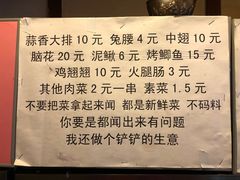 蒜香大排 10 元 兔腰 4 元 中翅 10 元
脑花 20 元 泥鳅 6 元 烤鲫鱼 15 元
鸡翘翘 10 元 火腿肠 3 元
其他肉菜 2 元一串 素菜 1.5 元
不要把菜拿起来闻 都是新鲜菜 不码料
你要是都闻出来有问题
我还做个铲铲的生意